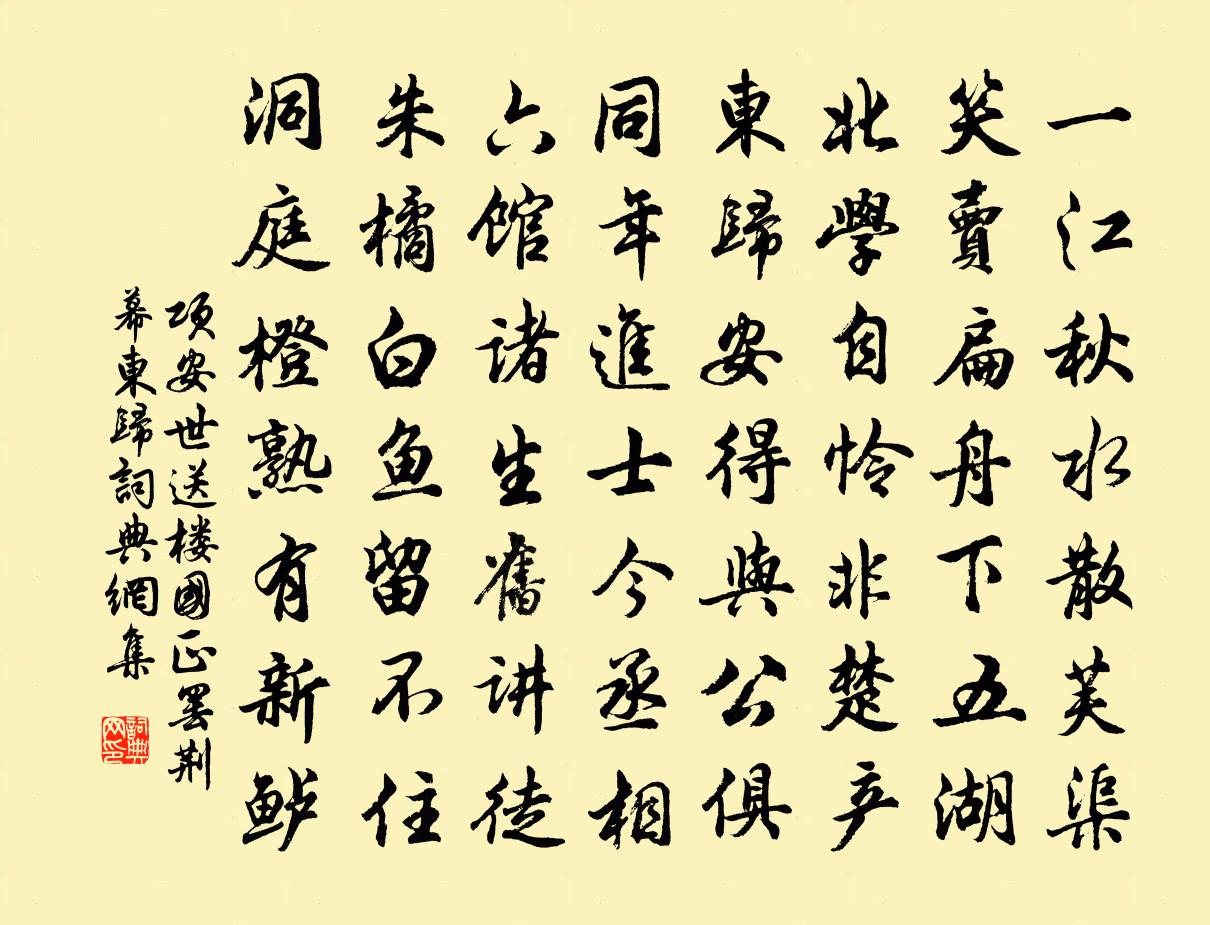 一江秋水散芙渠
笑賣扁舟下五湖
北學自怜非楚产
東歸安得與公俱
同年進士今丞相
六馆诸生舊讲徒
朱橘白鱼留不住
洞庭橙熟有新鲈
项安世送楼國正罢荆
幕東歸詞典網集
詞典网印